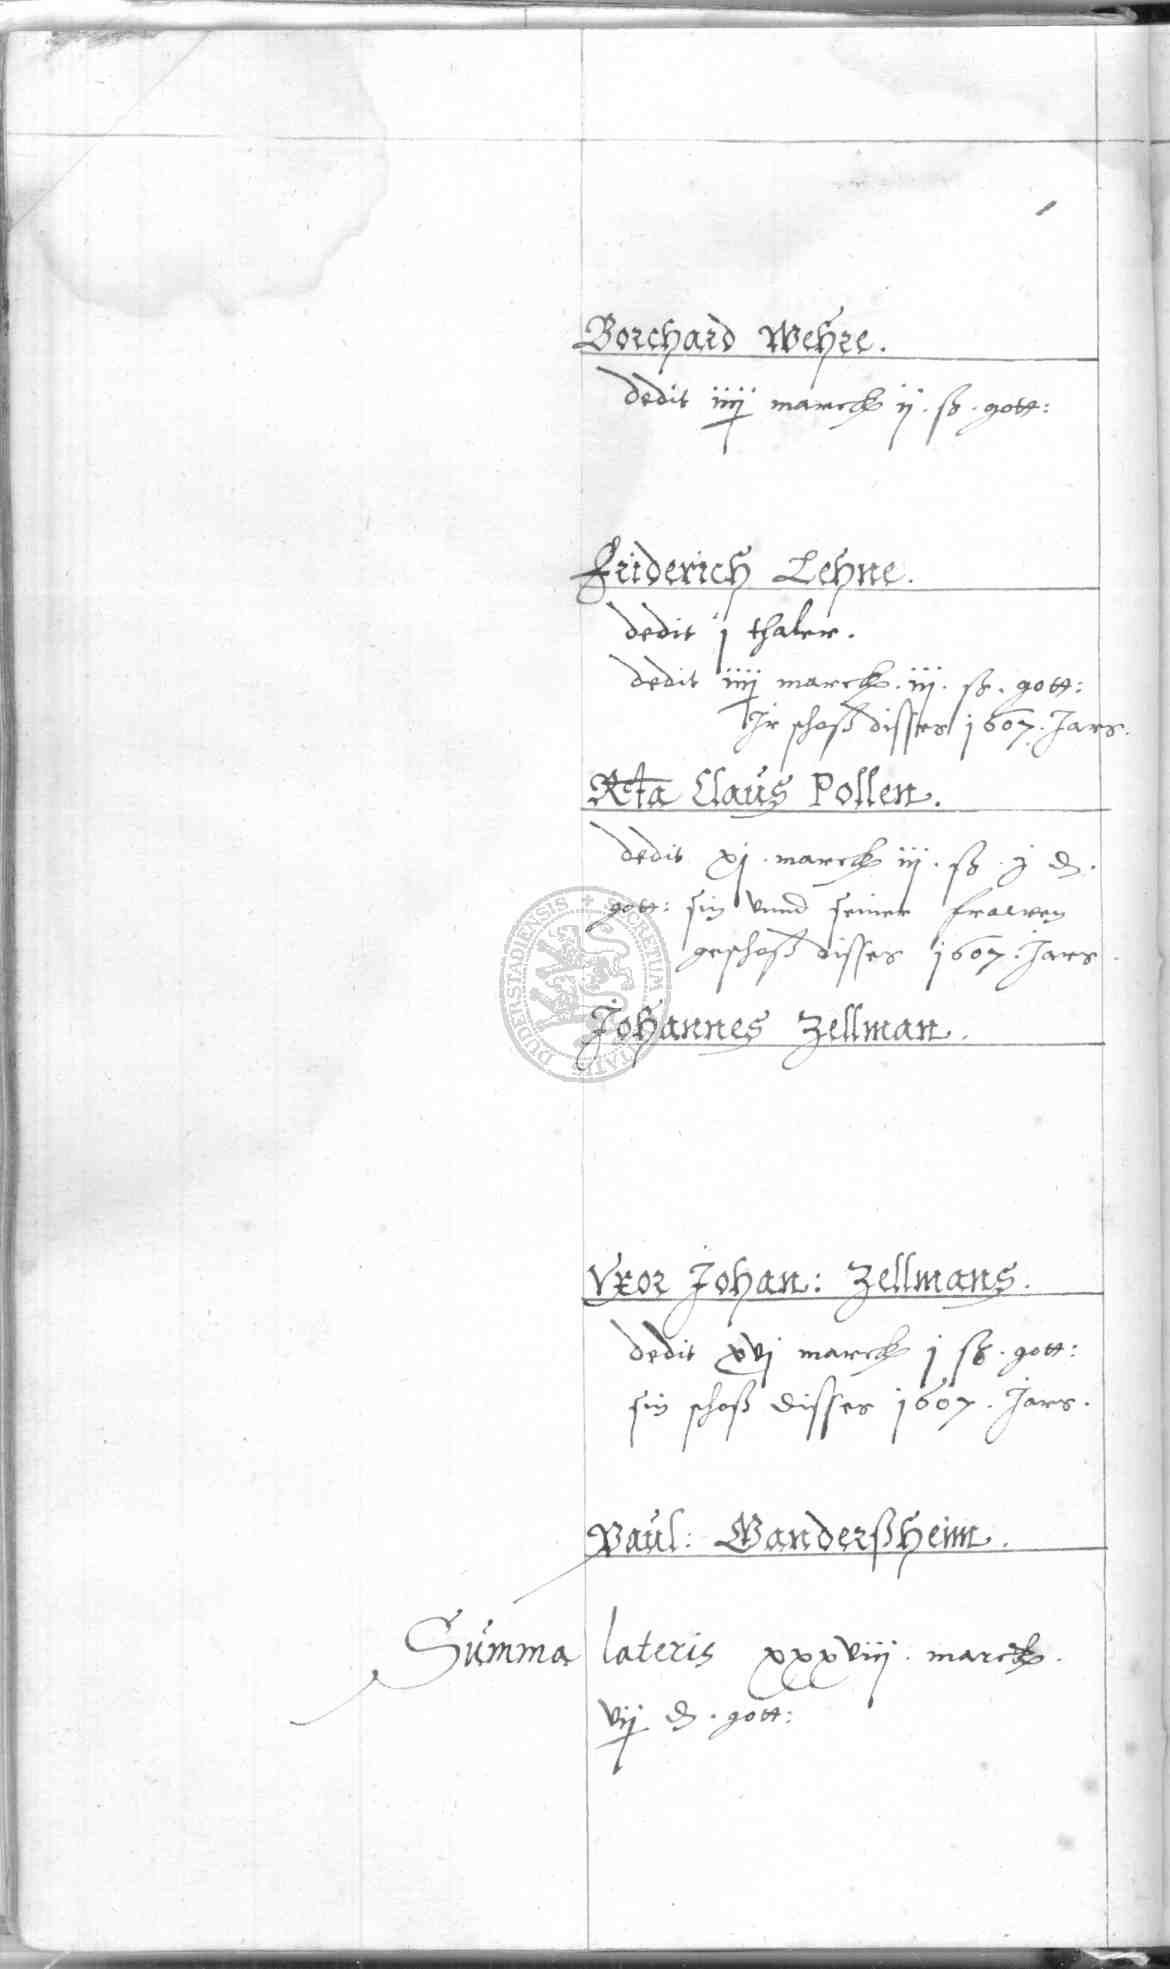 Borchard Wehre.
dedit iiij marck ij. ß. gott:
Friderich Lehne.
dedit j thaler.
dedit iiij marck. iij. ß. gott:
Ir schoß disses 1607. Jars.
Rta Claus Pollen.
dedit xj. marck iij. ß. j d.
gott: sin vnnd seiner frawen
geschoß disses 1607. Jars.
Johannes Zellman.
SECRETUM CIVITATIS DUDERSTADIENSIS
Vxor Johan: Zellmans.
dedit xvj marck j ß. gott:
sin schoß disses 1607. Jars.
Paul: Ganderßheim.
Summa lateris xxxviij. marck.
vij d. gott: